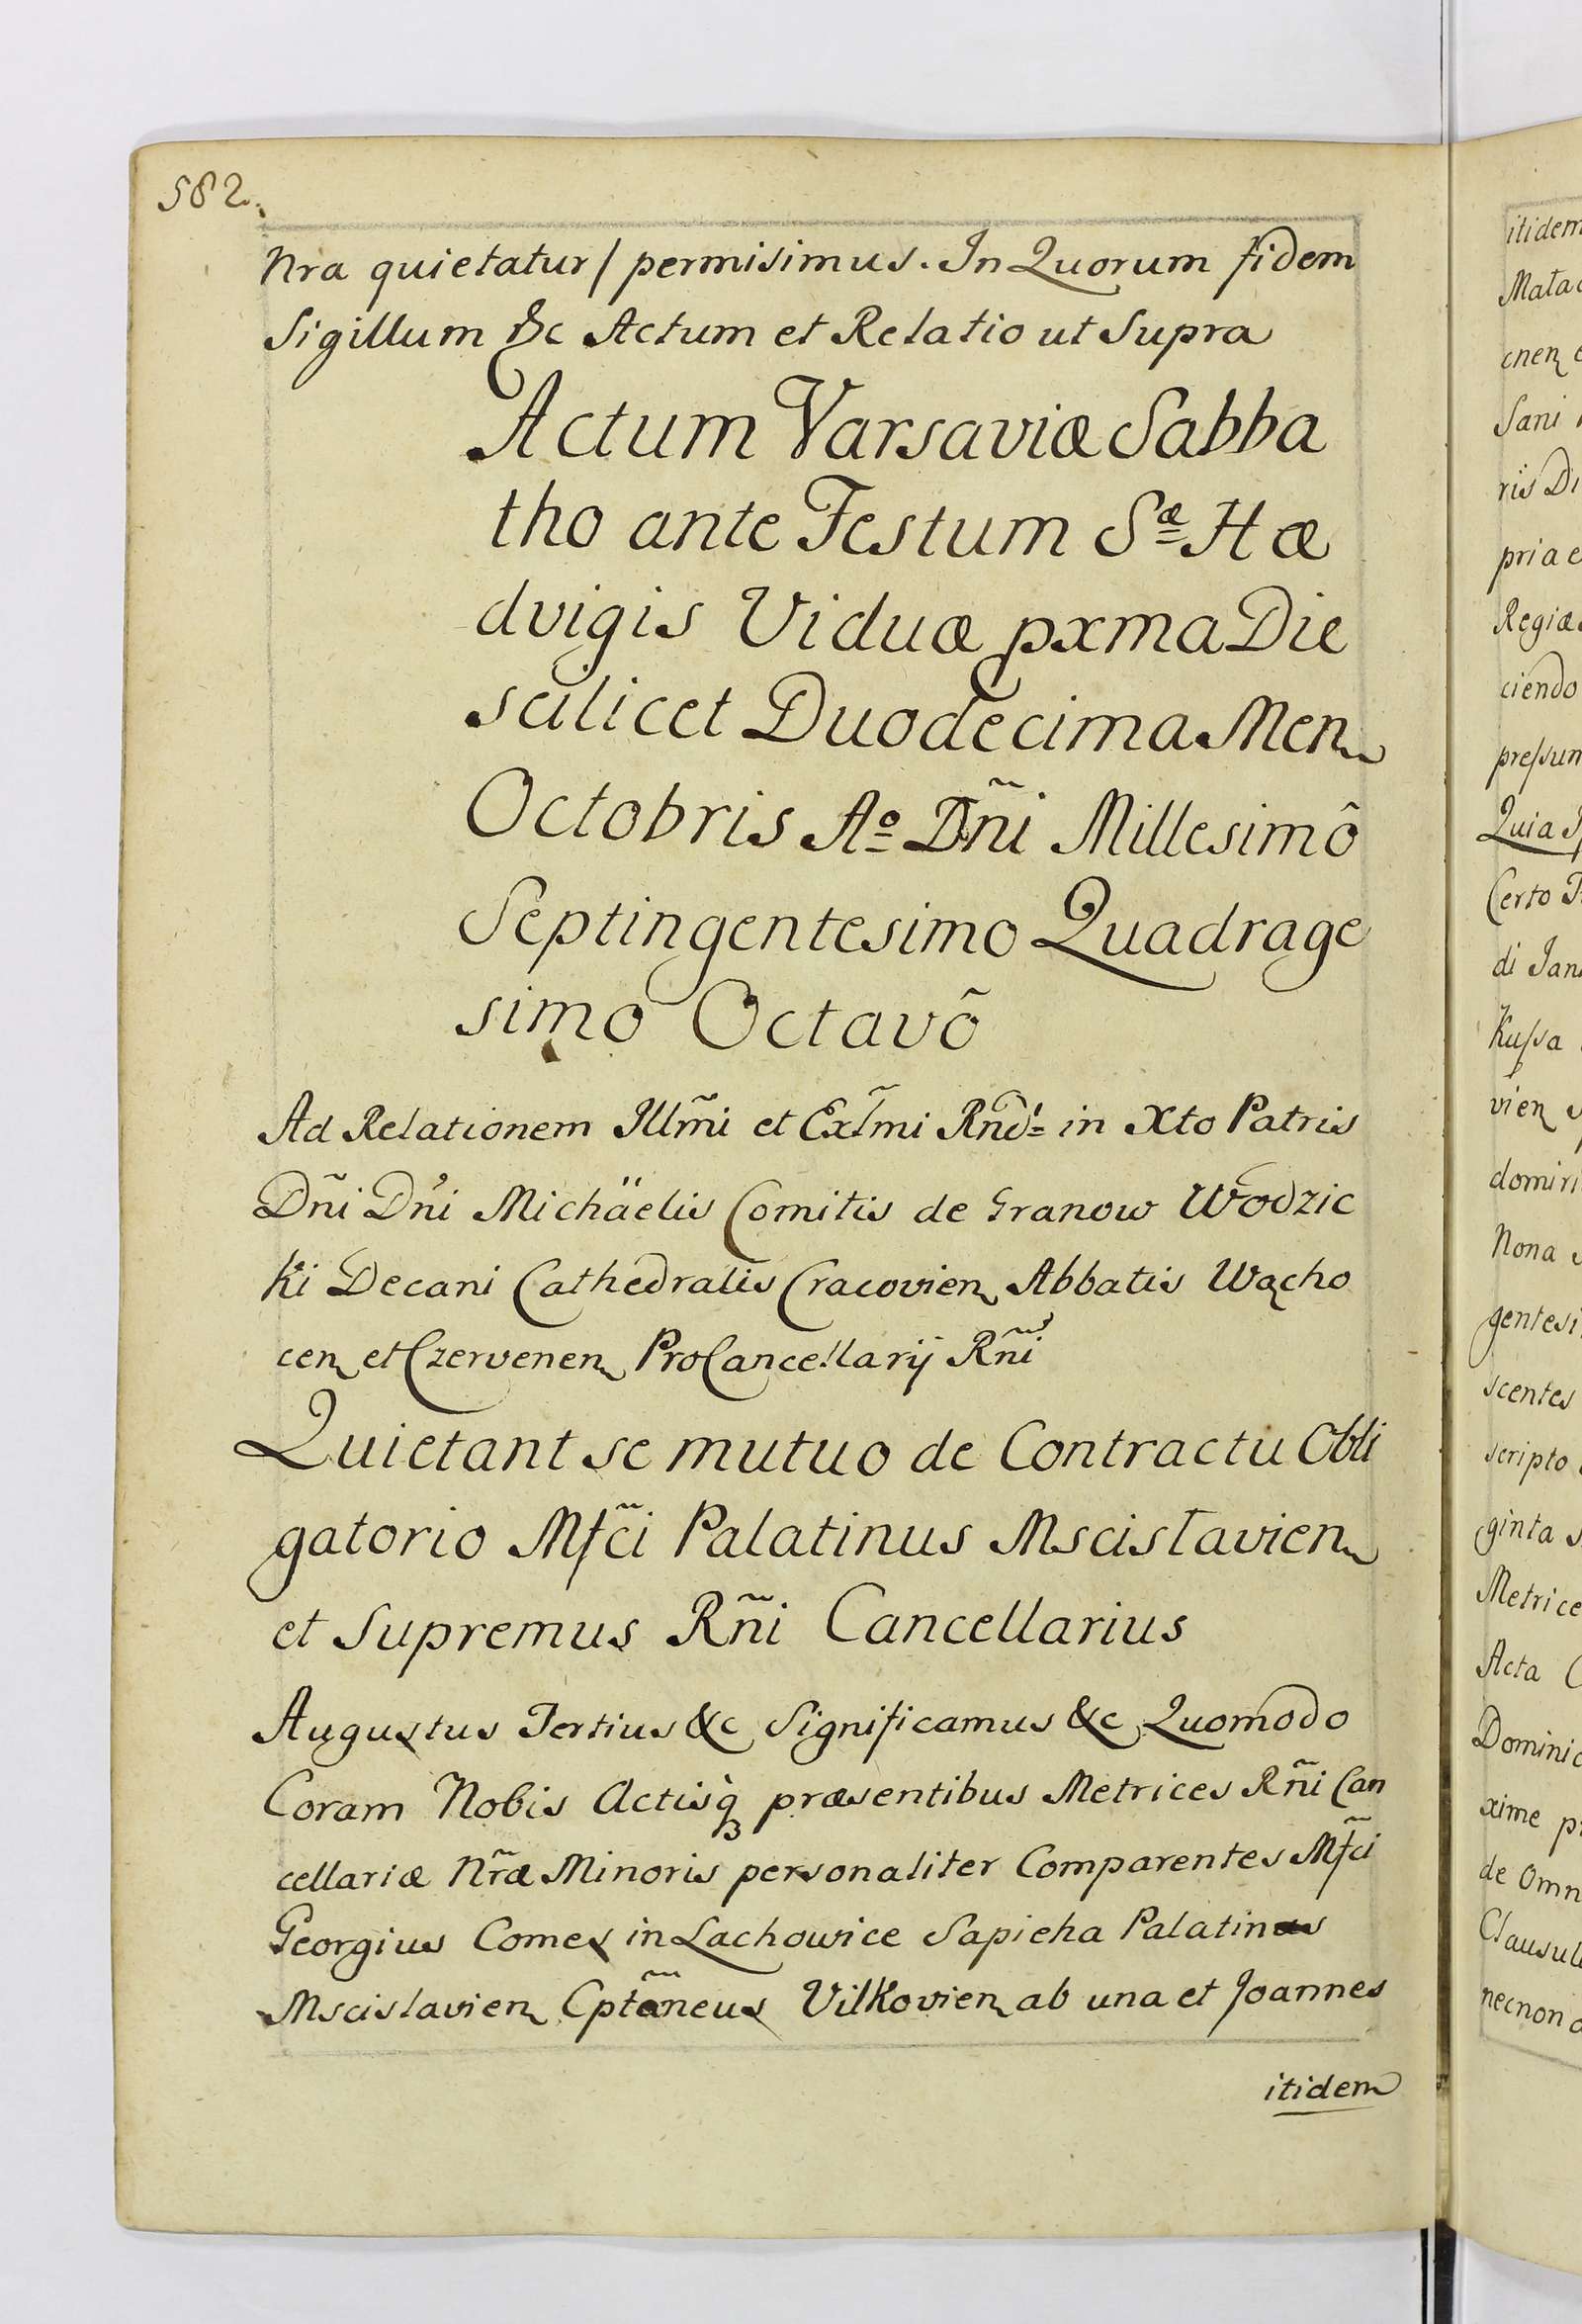 582.
Nra quietatur / permisimus. In Quorum fidem
Sigillum &c Actum et Relatio ut Supra
Actum Varsaviæ Sabba
tho ante Festum Sæ Hæ
dvigis Viduæ pxma Die
scilicet Duodecima Men
Octobris Ao Dñi Millesimô
Septingentesimo Quadrage
simo Octavô
Ad Relationem Illm̃i et Exl̃mi Rnd̃i in Xto Patris
Dñi Dñi Michäelis Comitis de Granow Wodzic
ki Decani Cathedralis Cracovien Abbatis Wącho
cen et Czervenen ProCancellarij Rñi
Quietant se mutuo de Contractu Obli
gatorio Mfc̃i Palatinus Mscislavien
et Supremus Rñi Cancellarius
Augustus Tertius &c Significamus &c Quomodo
Coram Nobis Actisq̀ præsentibus Metrices Rñi Can
cellariæ Nr̃æ Minoris personaliter Comparentes Mfc̃i
Georgius Comes in Lachowice Sapieha Palatinus
Mscislavien Cptãneus Vilkovien ab una et Joannes
itidem
itidem
Mata
cnen
Sani
ris Di
pria e
Regiæ
ciendo
pressum
Quia
Certo
di Jan
Kussa
vien
domini
Nona
gentesi
scentes
scripto
ginta
Metrice
Acta
Dominic
xime p
de Omn
Clausul
necnon